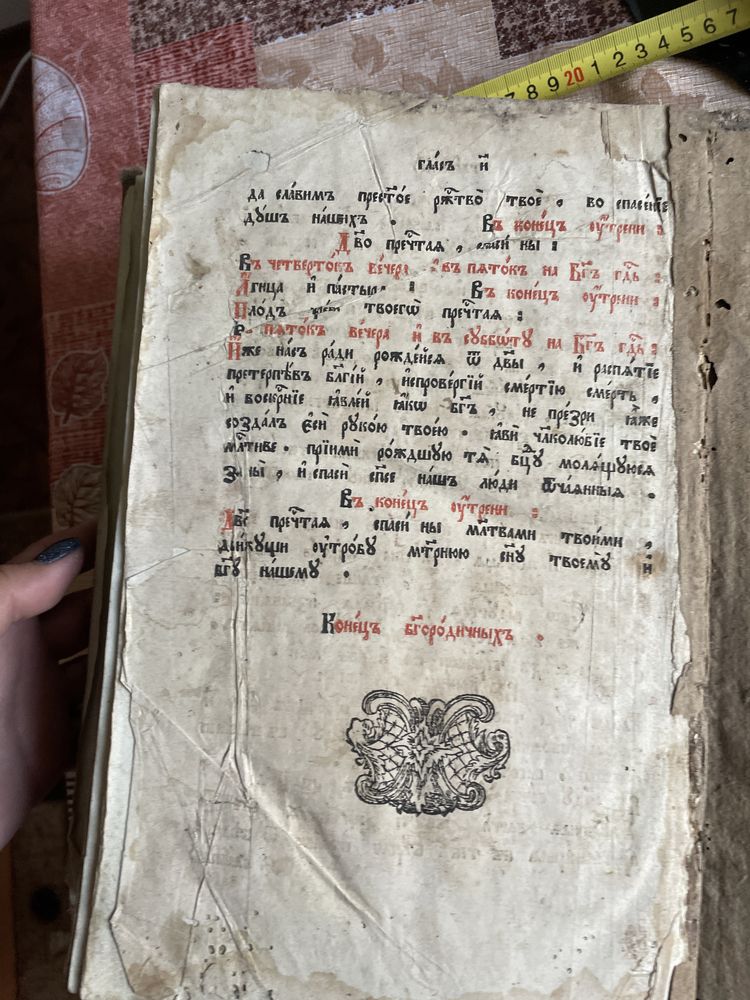 7 8 9 20 1 2 3 4 5 6 7
гла́съ и҃
да славимъ прест҃о́е рж҃тво̀ твоѐ , во спасе́нїе
ду́шъ на́шихъ . Въ коне́цъ ᲂу҆́трени :
Дв҃о преч҃тая , спаси́ ны :
Въ четверто́къ ве́чера . въ пято́къ на Бг҃ъ гд҃ь :
А҆́гница и҆ па́стыр : Въ коне́цъ ᲂу҆́трени :
Пло́дъ чре́ва твоегѡ̀ преч҃тая :
В пято́къ ве́чера и҆ въ суббѡ́ту на Бг҃ъ гд҃ь :
И҆́же на́съ ра́ди рожде́йся ѿ дв҃ы , и҆ распя́тїе
претерпѣ́въ бл҃гі́й , и҆спрове́ргїй сме́ртїю сме́рть ,
и҆ воскр҃нїе ꙗ҆вле́й ꙗ҆́кѡ бг҃ъ , не пре́зри ꙗ҆̀же
созда́лъ є҆сѝ руко́ю твое́ю . ꙗ҆вѝ чл҃колю́бїе твоѐ
мл҃тиве . прїимѝ ро́ждшую тя̀ бц҃у моля́щуюся
за ны̀ , и҆ спасѝ сп҃се на́шъ лю́ди ѿча́янныя .
Въ коне́цъ ᲂу҆́трени :
Дв҃о преч҃тая , спаси́ ны мл҃твами твои́ми ,
дви́жущи ᲂу҆тро́бу мт҃рнюю сн҃у твоему̀ и҆
бг҃у на́шему .
Коне́цъ бг҃оро́дичныхъ .